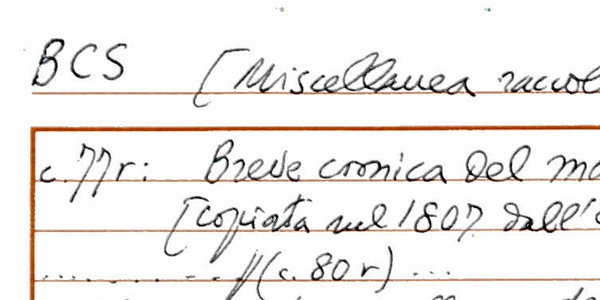 BCS [Miscellanea raccol
c.77r: Breve cronica del mo
[copiata nel 1807 dall'
.......... - . . //(c. 80r) ...